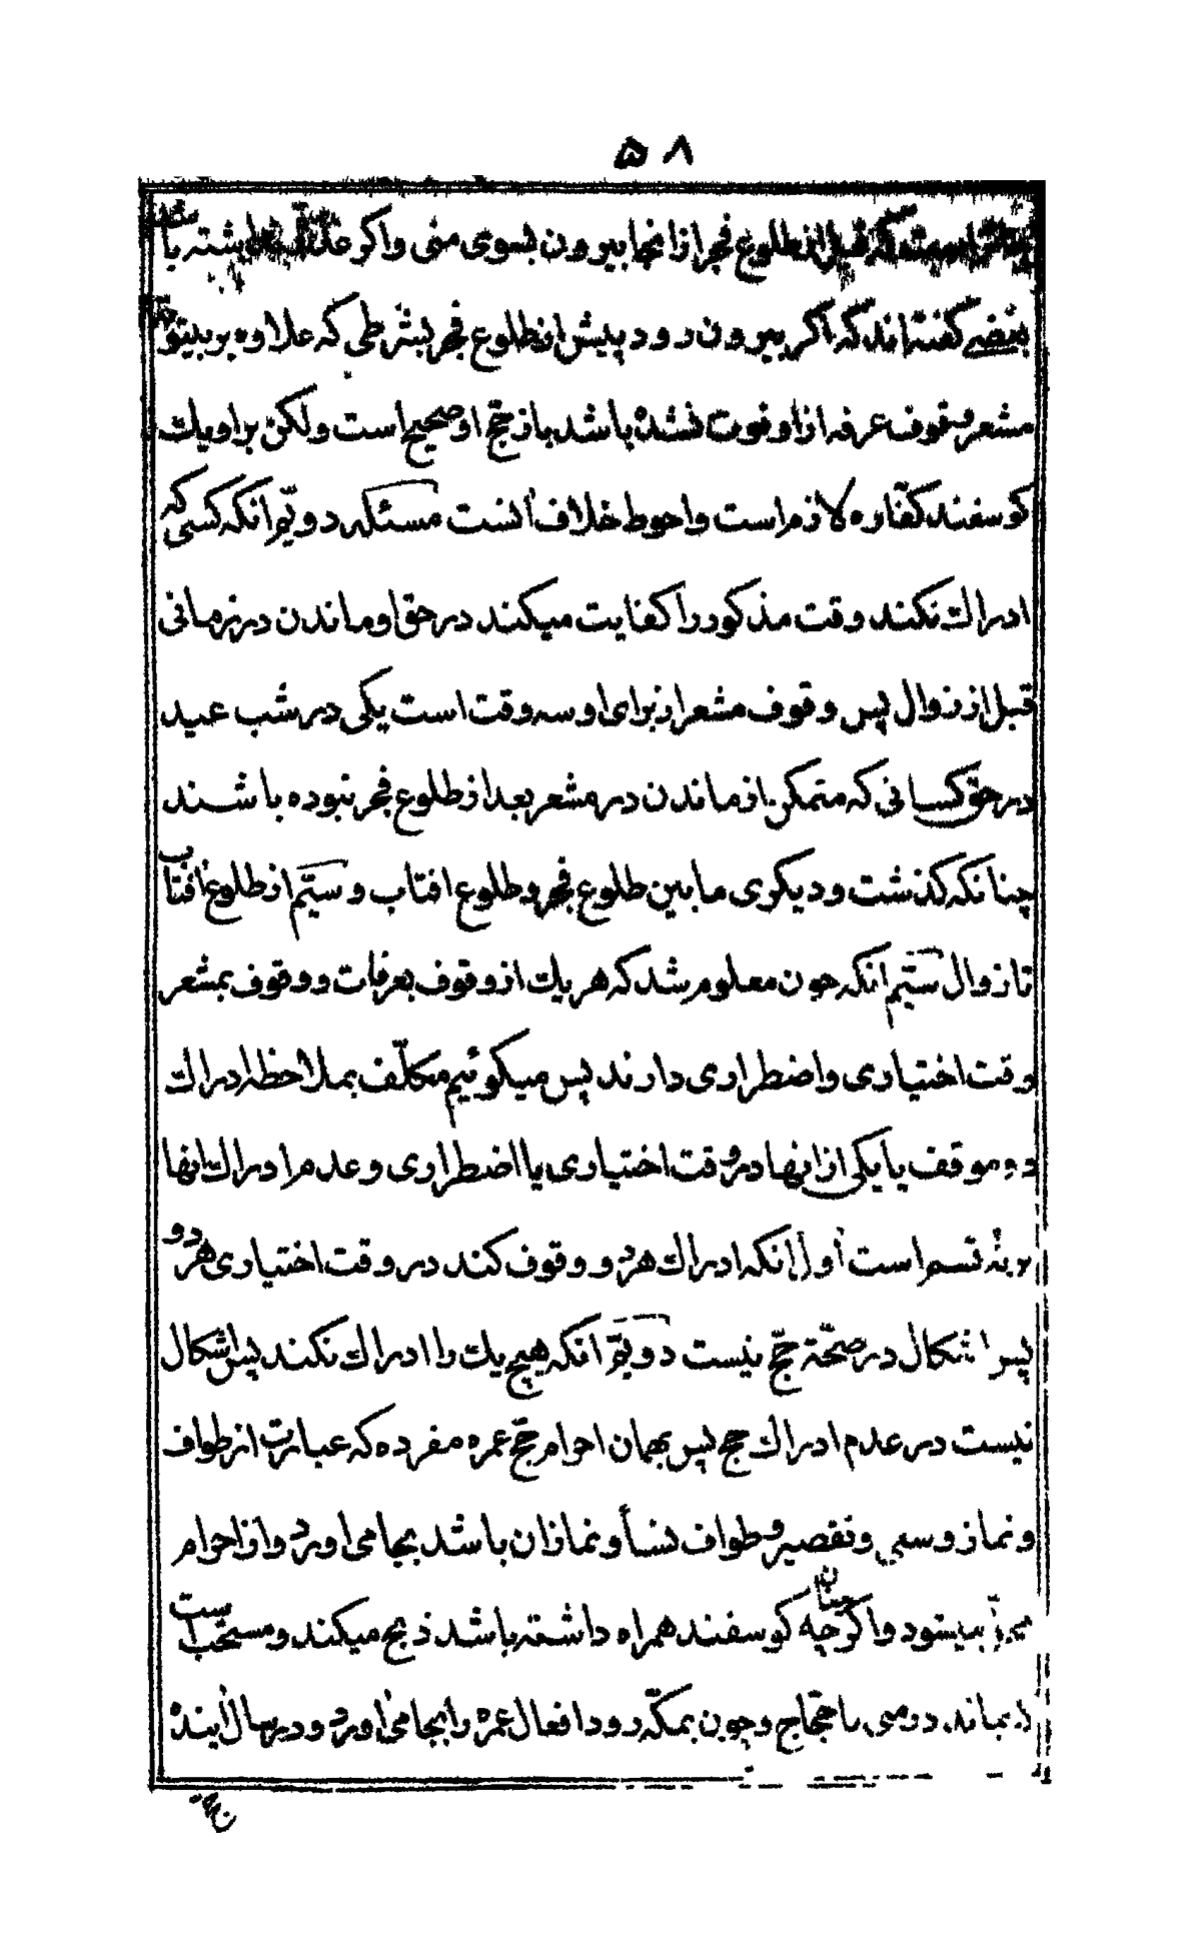 ۵۸
است که قبل از طلوع فجر از انجا بیرون بسوی منی واکر عذری نداشته باشد
بعضی کفته‌اند که اکر بیرون رود پیش از طلوع فجر بشرطی که علاوه بر بیتوته
مشعر وقوف عرفه از او فوت نشده باشد باز حجّ او صحیح است ولکن بر او یك
کوسفند کفّاره لازم است واحوط خلاف آنست مسئله دویّم انکه کسی که
ادراك نکند وقت مذکور را کفایت میکند در حق او ماندن در زمانی
قبل از زوال پس وقوف مشعر از برای او سه وقت است یکی در شب عید
در حق کسانی که متمکن از ماندن در مشعر بعد از طلوع فجر نبوده باشند
چنانکه کذشت ودیکری مابین طلوع فجر وطلوع افتاب وسیّم از طلوع افتاب
تا زوال سیّم انکه چون معلوم شد که هر یك از وقوف بعرفات ووقوف بمشعر
وقت اختیاری واضطراری دارند پس میکوئیم مکلّف بملاحظه ادراك
دو موقف یا یکی از اینها در وقت اختیاری یا اضطراری وعدم ادراك انها
بر نه قسم است اول انکه ادراك هر دو وقوف کند در وقت اختیاری هر دو
پس اشکال در صحّة حجّ نیست دویّم انکه هیچ یك را ادراك نکند پس اشکال
نیست در عدم ادراك حج پس بهمان احرام حجّ عمره مفرده که عبارت از طواف
ونماز وسعی وتقصیر وطواف نسأ ونماز ان باشد بجا می اورد واز احرام
بیرون میشود واکر چنانچه کوسفند همراه داشته باشد ذبح میکند ومستحب است
بماند در منی با حجّاج وچون بمکّه رود افعال عمره را بجا می اورد ودر سال اینده
حجّ